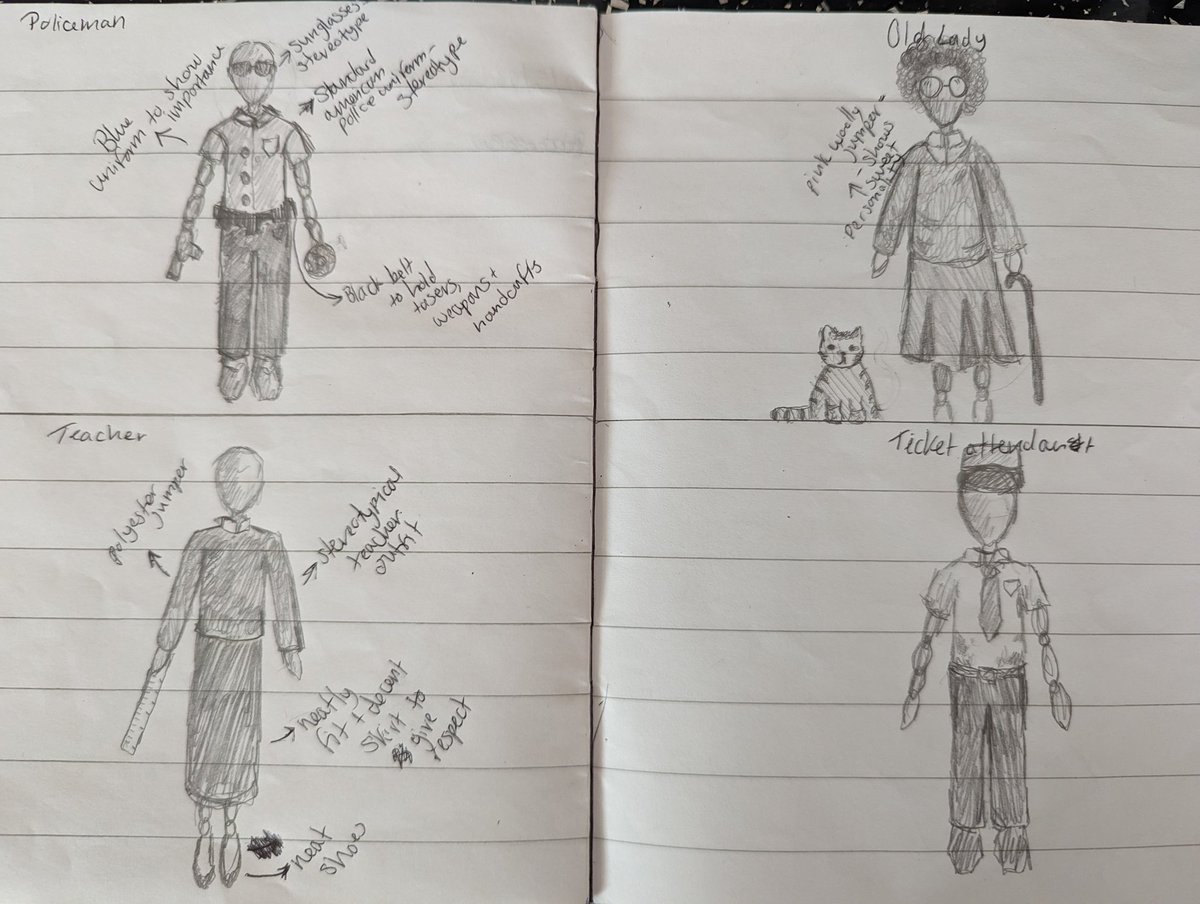 Policeman
Blue
uniform to show
importance
Sunglasses
stereotype
Standard
american
police uniform -
stereotype
Black belt
to hold
tasers,
weapons +
handcuffs
Old Lady
pink woolly
jumper =
- shows
sweet
personality
Teacher
Polyester
jumper
stereotypical
teacher
outfit
neatly
fit + decent
skirt to
give
respect
neat
show
Ticket attendant